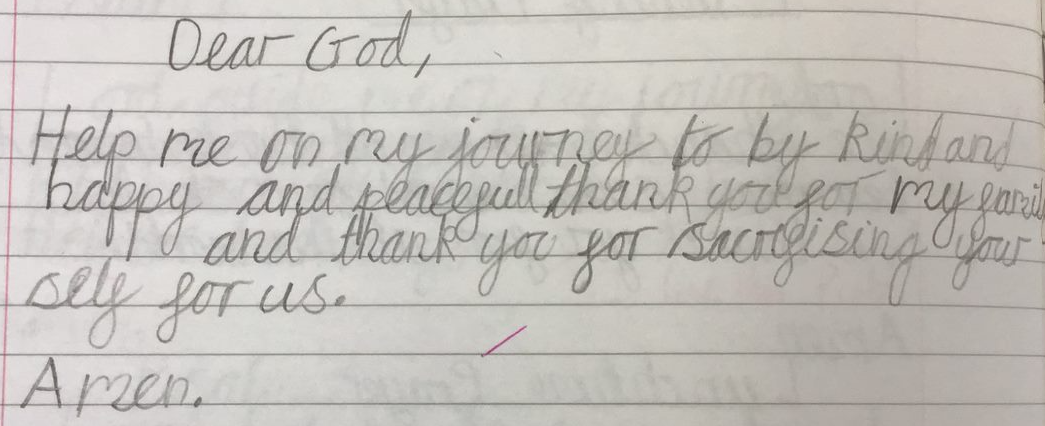 Dear God,
Help me on my journey to by kind and
happy and peacefull thank you for my famil
and thank you for sacrofising your
self for us.
Amen.